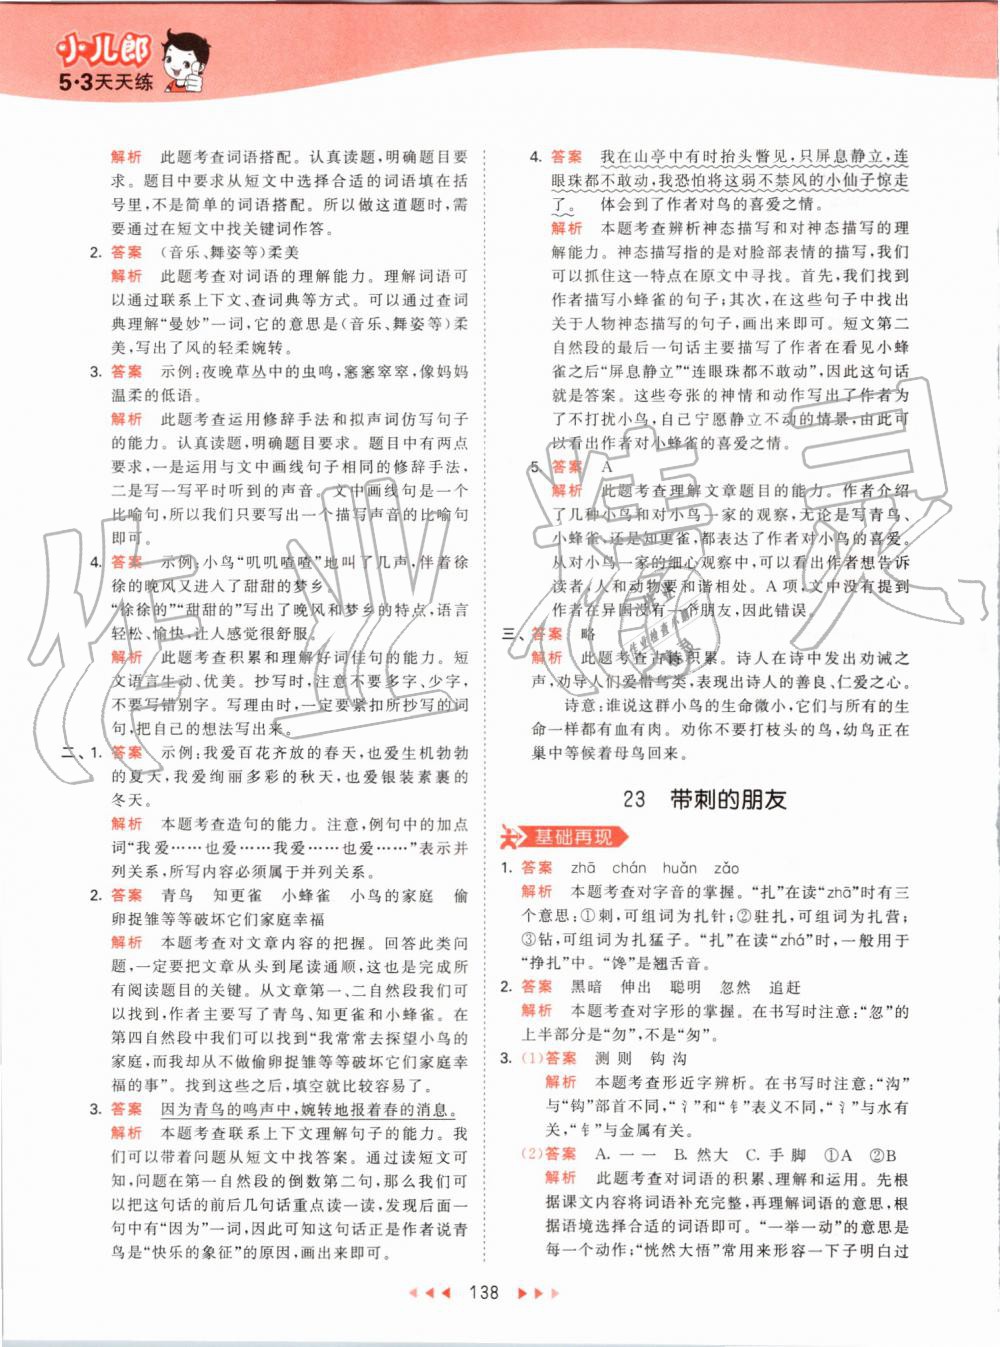 小儿郎
5·3天天练
解析 此题考查词语搭配。认真读题,明确题目要
求。题目中要求从短文中选择合适的词语填在括
号里,不是简单的词语搭配。所以做这道题时,需
要通过在短文中找关键词作答。
2. 答案 (音乐、舞姿等)柔美
解析 此题考查对词语的理解能力。理解词语可
以通过联系上下文、查词典等方式。可以通过查词
典理解“曼妙”一词,它的意思是(音乐、舞姿等)柔
美,写出了风的轻柔婉转。
3. 答案 示例:夜晚草丛中的虫鸣,窸窸窣窣,像妈妈
温柔的低语。
解析 此题考查运用修辞手法和拟声词仿写句子
的能力。认真读题,明确题目要求。题目中有两点
要求,一是运用与文中画线句子相同的修辞手法,
二是写一写平时听到的声音。文中画线句是一个
比喻句,所以我们只要写出一个描写声音的比喻句
即可。
4. 答案 示例:小鸟“叽叽喳喳”地叫了几声,伴着徐
徐的晚风又进入了甜甜的梦乡。
“徐徐的”“甜甜的”写出了晚风和梦乡的特点,语言
轻松、愉快,让人感觉很舒服。
解析 此题考查积累和理解好词佳句的能力。短
文语言生动、优美。抄写时,注意不要多字、少字,
不要写错别字。写理由时,一定要紧扣所抄写的词
句,把自己的想法写出来。
二、1. 答案 示例:我爱百花齐放的春天,也爱生机勃勃
的夏天,我爱绚丽多彩的秋天,也爱银装素裹的
冬天。
解析 本题考查造句的能力。注意,例句中的加点
词“我爱……也爱……我爱……也爱……”表示并
列关系,所写内容必须属于并列关系。
2. 答案 青鸟 知更雀 小蜂雀 小鸟的家庭 偷
卵捉雏等等破坏它们家庭幸福
解析 本题考查对文章内容的把握。回答此类问
题,一定要把文章从头到尾读通顺,这也是完成所
有阅读题目的关键。从文章第一、二自然段我们可
以找到,作者主要写了青鸟、知更雀和小蜂雀。在
第四自然段中我们可以找到“我常常去探望小鸟的
家庭,而我却从不做偷卵捉雏等等破坏它们家庭幸
福的事”。找到这些之后,填空就比较容易了。
3. 答案 因为青鸟的鸣声中,婉转地报着春的消息。
解析 本题考查联系上下文理解句子的能力。我们
可以带着问题从短文中找答案。通过读短文可
知,问题在第一自然段的倒数第二句,那么,我们就
可以把这句话的前后几句话重点读一读,发现后一
句中有“因为”一词,因此可知这句话正是作者说青
鸟是“快乐的象征”的原因,画出来即可。
4. 答案 我在山亭中有时抬头瞥见,只屏息静立,连
眼珠都不敢动,我恐怕将这弱不禁风的小仙子惊走
了。 体会到了作者对鸟的喜爱之情。
解析 本题考查辨析神态描写和对神态描写的理
解能力。神态描写指的是对脸部表情的描写,我们
可以抓住这一特点在原文中寻找。首先,我们找到
作者描写小蜂雀的句子;其次,在这些句子中找出
关于人物神态描写的句子,画出来即可。短文第二
自然段的最后一句话主要描写了作者在看见小蜂
雀之后“屏息静立”“连眼珠都不敢动”,因此这句话
就是答案。这些夸张的神情和动作写出了作者为
了不打扰小鸟,自己宁愿静立不动的情景,由此可
以看出作者对小蜂雀的喜爱之情。
5. 答案 A
解析 此题考查理解文章题目的能力。作者介绍
了几种小鸟和对小鸟一家的观察,无论是写青鸟、
小蜂雀,还是知更雀,都表达了作者对小鸟的喜爱。
从对小鸟一家的细心观察中可以看出作者想告诉
读者,人和动物要和谐相处。A 项,文中没有提到
作者在异国没有一个朋友,因此错误。
三、答案 略
解析 此题考查古诗积累。诗人在诗中发出劝诫之
声,劝导人们爱惜鸟类,表现出诗人的善良、仁爱之心。
诗意:谁说这群小鸟的生命微小,它们与所有的生
命一样都有血有肉。劝你不要打枝头的鸟,幼鸟正在
巢中等候着母鸟回来。
23 带刺的朋友
基础再现
1. 答案 zhā chán huǎn zǎo
解析 本题考查对字音的掌握。“扎”在读“zhā”时有三
个意思:①刺,可组词为扎针;②驻扎,可组词为扎营;
③钻,可组词为扎猛子。“扎”在读“zhá”时,一般用于
“挣扎”中。“馋”是翘舌音。
2. 答案 黑暗 伸出 聪明 忽然 追赶
解析 本题考查对字形的掌握。在书写时注意:“忽”的
上半部分是“勿”,不是“匆”。
3. (1)答案 测 则 钩 沟
解析 本题考查形近字辨析。在书写时注意:“沟”
与“钩”部首不同,“氵”和“钅”表义不同,“氵”与水有
关,“钅”与金属有关。
(2)答案 A. 一 一 B. 然大 C. 手 脚 ①A ②B
解析 此题考查对词语的积累、理解和运用。先根
据课文内容将词语补充完整,再理解词语的意思,根
据语境选择合适的词语即可。“一举一动”的意思是
每一个动作;“恍然大悟”常用来形容一下子明白过
138
作业精灵